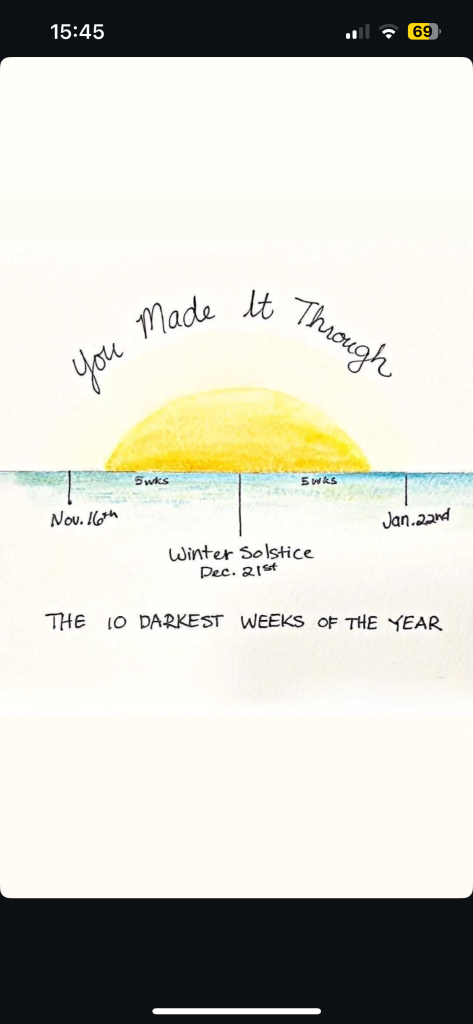 15:45
69
You Made It Through
5wks
5wks
Nov. 16th
Jan. 22nd
Winter Solstice
Dec. 21st
THE 10 DARKEST WEEKS OF THE YEAR